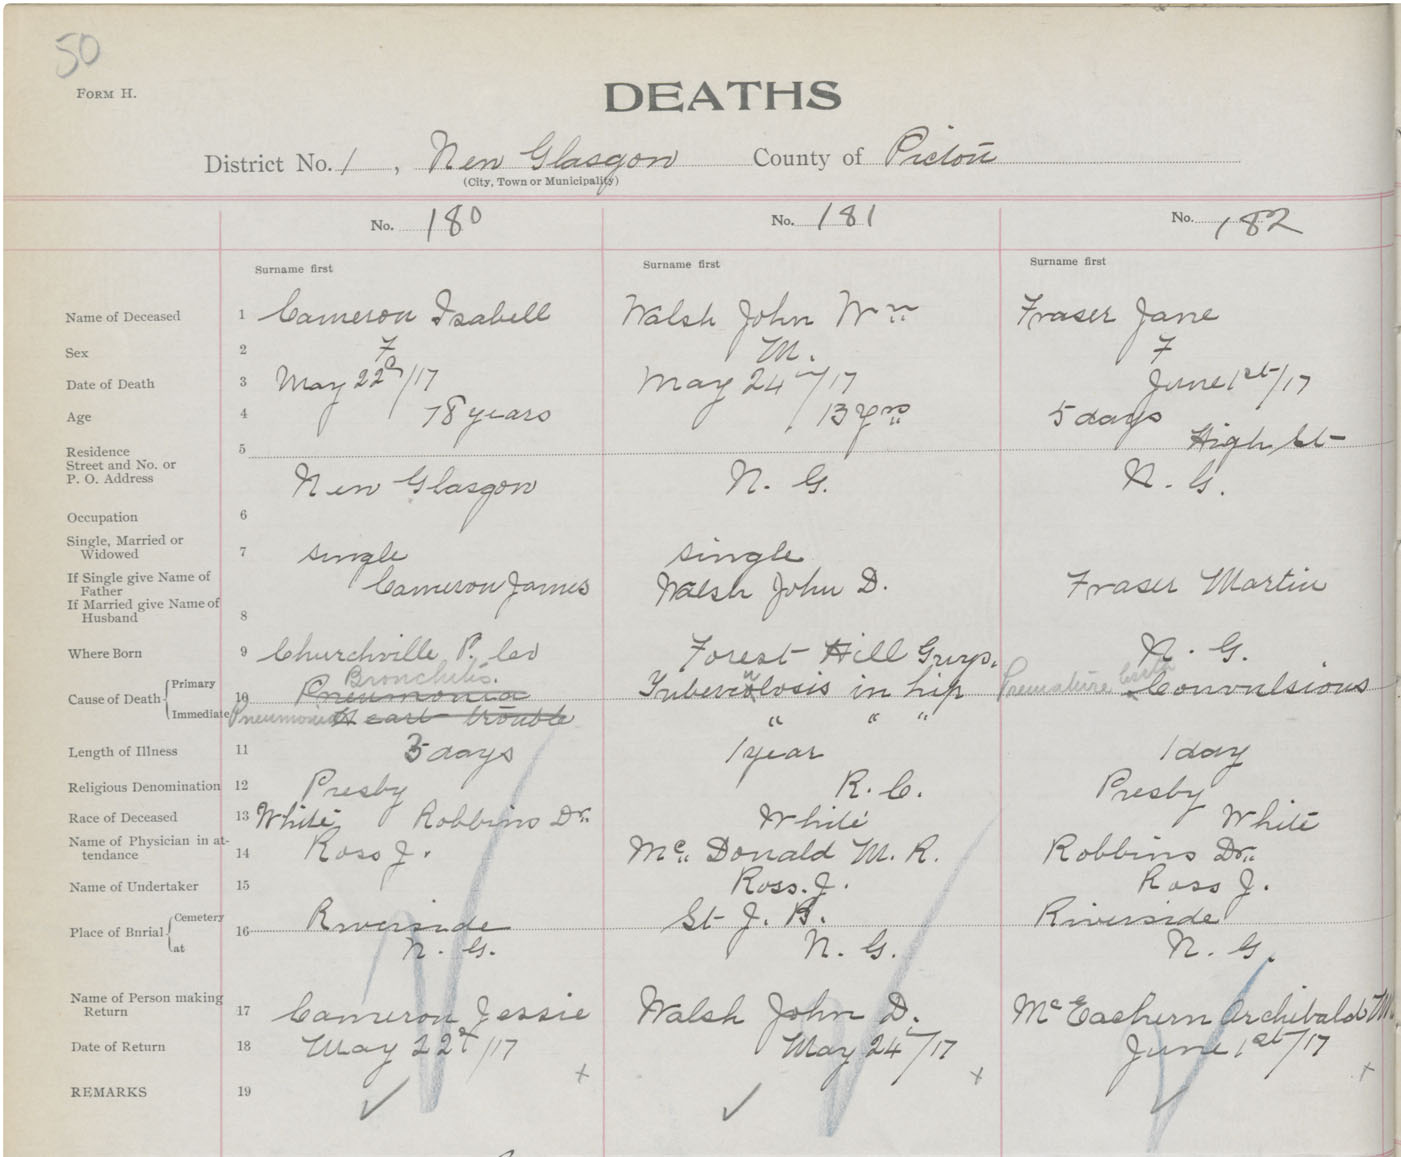 50
FORM H.
DEATHS
District No. 1, New Glasgow County of Pictou
(City, Town or Municipality)
No. 180 No. 181 No. 182
Surname first Surname first Surname first
Name of Deceased 1 Cameron Isabell Walsh John Wm Fraser Jane
Sex 2 F M. F
Date of Death 3 May 22d/17 May 24/17 June 1st/17
Age 4 78 years 13 yrs 5 days
Residence Street and No. or P. O. Address 5 High St
New Glasgow N. G. N. G.
Occupation 6
Single, Married or Widowed 7 single single
If Single give Name of Father Cameron James Walsh John D. Fraser Martin
If Married give Name of Husband 8
Where Born 9 Churchville P. Co Forest Hill Guys. N. G.
Bronchitis.
Cause of Death Primary 10 Pneumonia Tuberculosis in hip Premature birth Convulsions
Immediate Pneumonia Heart trouble " " "
Length of Illness 11 5 days 1 year 1 day
Religious Denomination 12 Presby R. C. Presby
Race of Deceased 13 White Robbins Dr. White White
Name of Physician in attendance 14 Ross J. Mc Donald M. R. Robbins Dr.
Name of Undertaker 15 Ross. J. Ross J.
Place of Burial Cemetery 16 Riverside St J. B. Riverside
at N. G. N. G. N. G.
Name of Person making Return 17 Cameron Jessie Walsh John D. McEachern Archibald M.
Date of Return 18 May 22d/17 May 24/17 June 1st/17
x x x
REMARKS 19 ✓ ✓ ✓